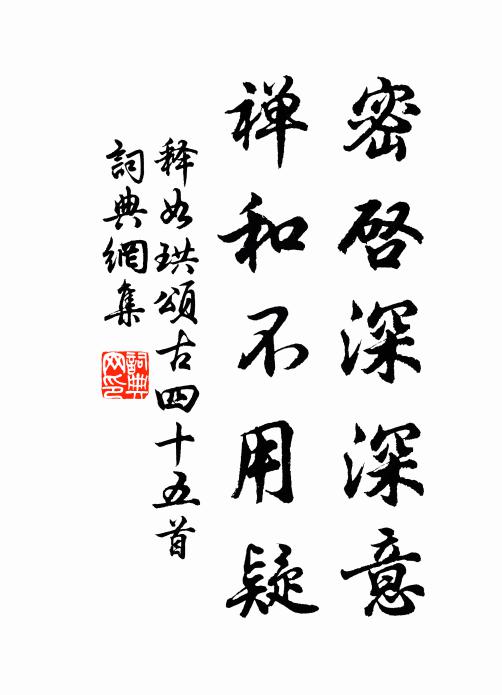 密启深深意
禅和不用疑
释如珙頌古四十五首
詞典網集
詞典網印